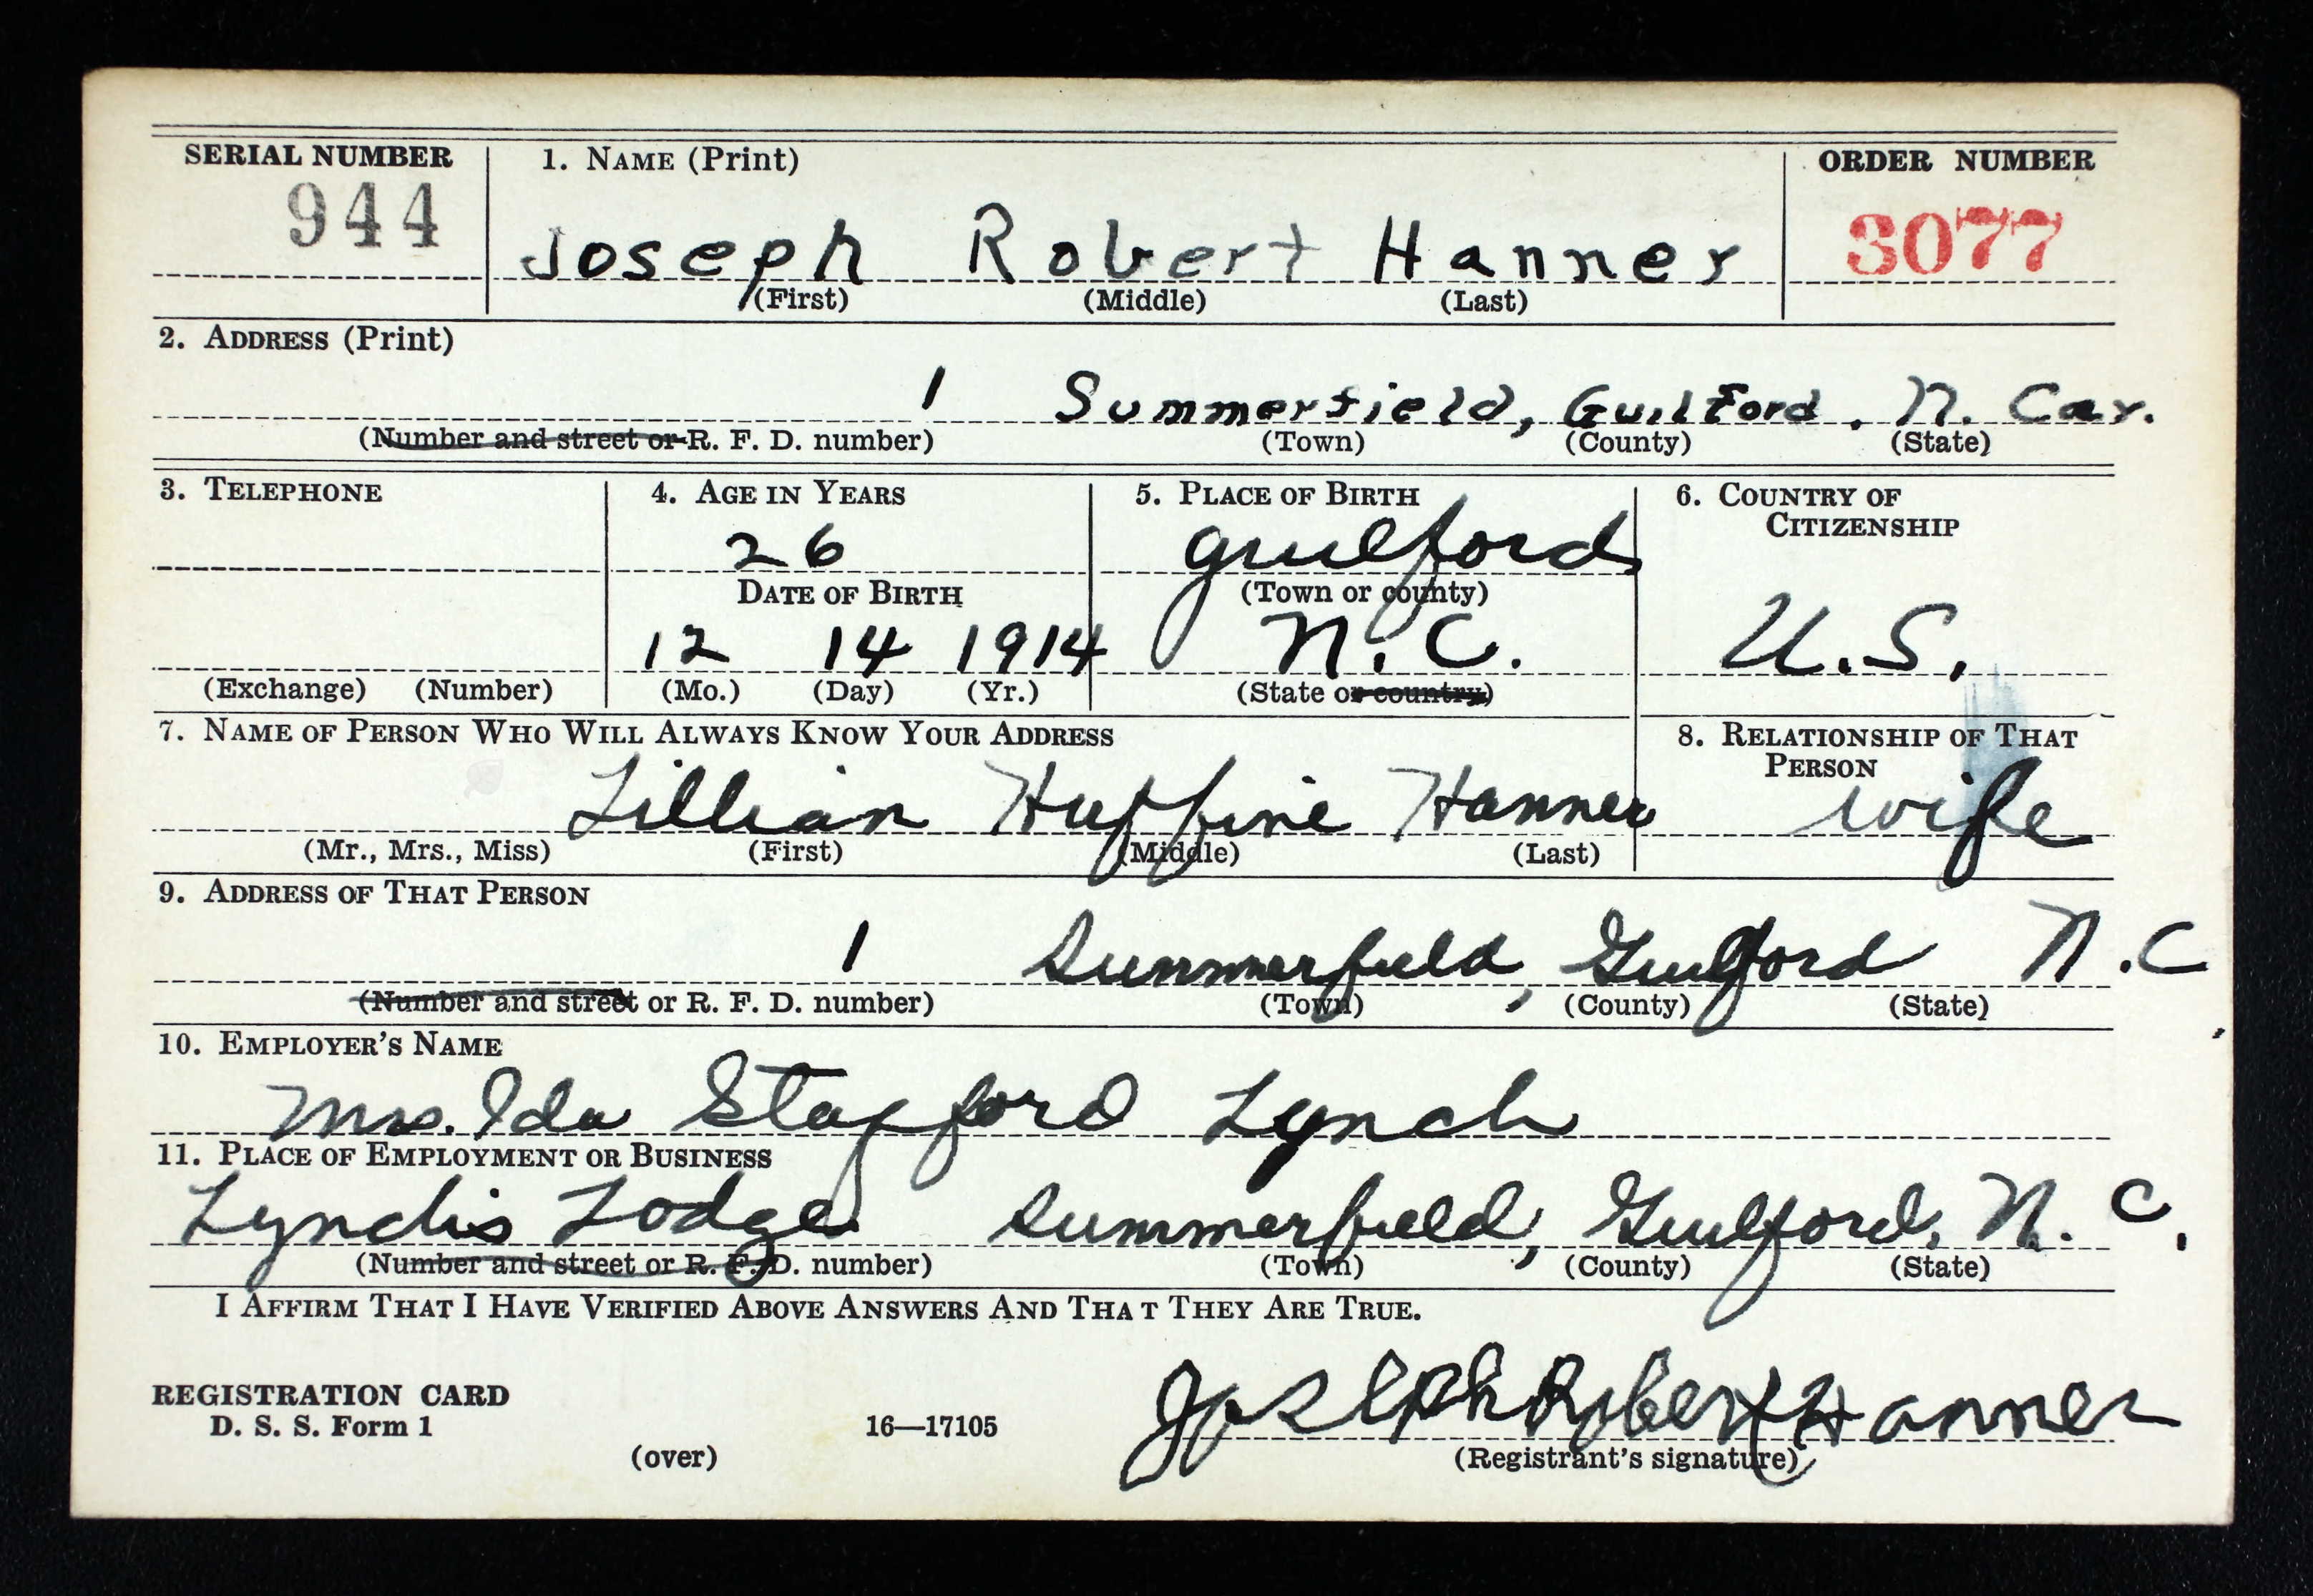 SERIAL NUMBER 1. NAME (Print) ORDER NUMBER
944 Joseph Robert Hanner 3077
(First) (Middle) (Last)
2. ADDRESS (Print)
1 Summerfield, Guilford. N. Car.
(Number and street or R. F. D. number) (Town) (County) (State)
3. TELEPHONE 4. AGE IN YEARS 5. PLACE OF BIRTH 6. COUNTRY OF
CITIZENSHIP
26 Guilford
DATE OF BIRTH (Town or county)
12 14 1914 N.C. U.S.
(Exchange) (Number) (Mo.) (Day) (Yr.) (State or country)
7. NAME OF PERSON WHO WILL ALWAYS KNOW YOUR ADDRESS 8. RELATIONSHIP OF THAT
PERSON
Lillian Huffine Hanner wife
(Mr., Mrs., Miss) (First) (Middle) (Last)
9. ADDRESS OF THAT PERSON
1 Summerfield, Guilford N.C
(Number and street or R. F. D. number) (Town) (County) (State)
10. EMPLOYER'S NAME
Mrs. Ida Stafford Lynch
11. PLACE OF EMPLOYMENT OR BUSINESS
Lynchs Lodge Summerfield, Guilford, N. C.
(Number and street or R. F. D. number) (Town) (County) (State)
I AFFIRM THAT I HAVE VERIFIED ABOVE ANSWERS AND THAT THEY ARE TRUE.
Joseph Robert Hanner
REGISTRATION CARD
D. S. S. Form 1 16—17105
(over) (Registrant's signature)